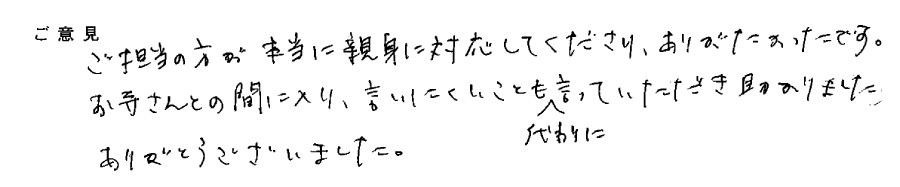 ご意見
ご担当の方が本当に親身に対応してくださり、ありがたかったです。
お寺さんとの間に入り、言いにくいことも代わりに言っていただき助かりました
ありがとうございました。